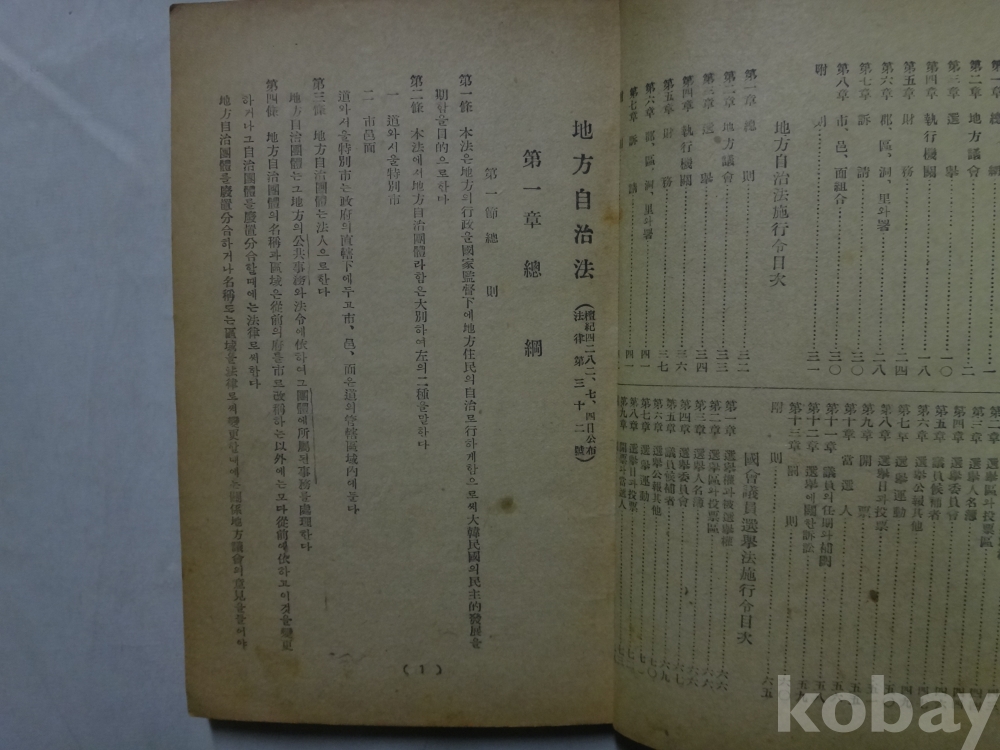 第二章 地方議會
第三章 選擧
第四章 執行機關
第五章 財務
第六章 郡、區、洞、里와署
第七章 訴請
第八章 市、邑、面組合
附
地方自治法施行令目次
第一章 總則
第二章 地方議會
第三章 選擧
第四章 執行機關
第五章 財務
第六章 郡、區、洞、里와署
第七章 訴請
第三章 選擧人名簿
第四章 選擧委員會
第五章 議員候補者
第六章 選擧公報其他
第七章 選擧運動
第八章 選擧日과投票
第九章 開票
第十章 當選人
第十一章 議員의任期와補闕
第十二章 選擧에關한訴訟
第十三章 罰則
附則
國會議員選擧法施行令目次
第一章 選擧權과被選擧權
第二章 選擧區와投票區
第三章 選擧人名簿
第四章 選擧委員會
第五章 議員候補者
第六章 選擧公報其他
第七章 選擧運動
第八章 選擧日과投票
第九章 開票와當選人
地方自治法(檀紀四二八二、七、四日公布 法律第三十二號)
第一章 總綱
第一節 總則
第一條 本法은地方의行政을國家監督下에地方住民의自治로行하게함으로써大韓民國의民主的發展을
期함을目的으로한다
第二條 本法에서地方自治團體라함은大別하여左의二種을말한다
一 道와서울特別市
二 市邑面
道와서울特別市는政府의直轄下에두고市、邑、面은道의管轄區域內에둔다
第三條 地方自治團體는法人으로한다
地方自治團體는그地方의公共事務와法令에依하여그團體에所屬된事務를處理한다
第四條 地方自治團體의名稱과區域은從前의府를市로改稱하는以外에는모다從前에依하고이것을變更
하거나그自治團體를廢置分合할때에는法律로써한다
地方自治團體를廢置分合하거나名稱또는區域을法律로써變更할때에는關係地方議會의意見을들어야
(1)
kobay